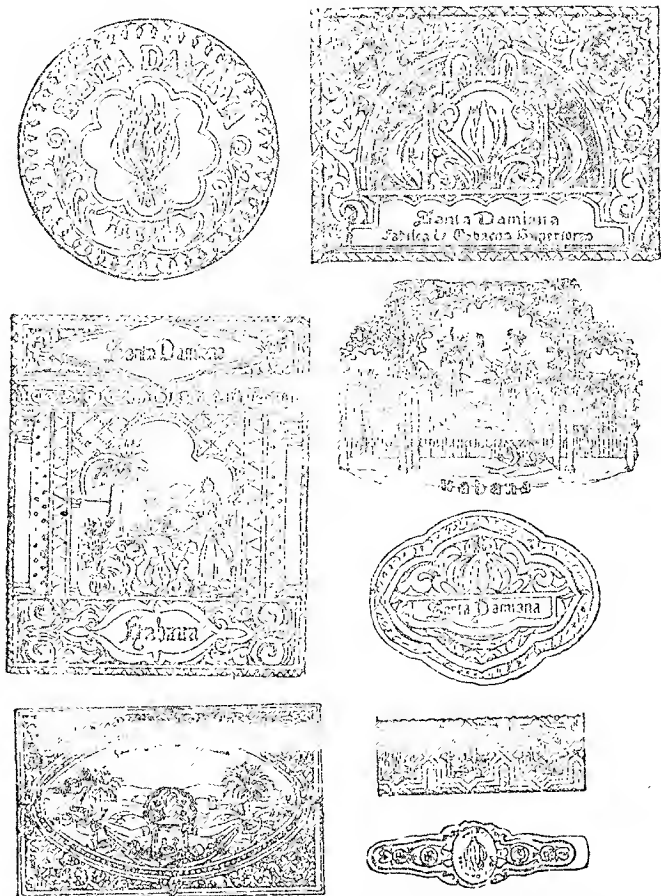 SANTA DAMIANA
HABANA
Santa Damiana
Fabrica de Tabacos Superiores
Santa Damiana
Habana
Habana
Santa Damiana